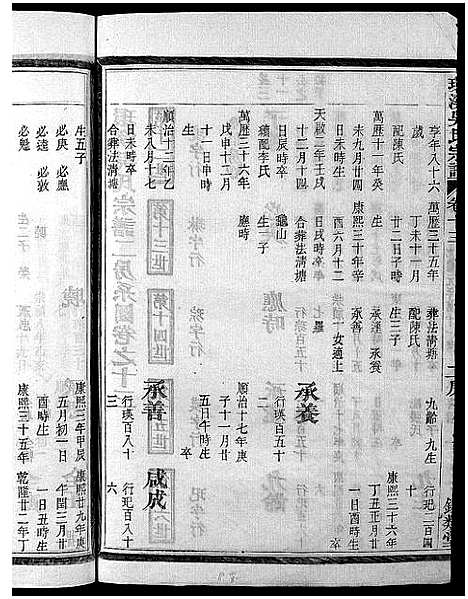 享年八十六 萬曆三十五年 葬法清塘 九齡下九生 行玘二百四
歲 丁未十一月 配陳氏 十
配陳氏 廿二日子時 生三子 康熙三十六年
萬曆十一年癸 卒 承養 丁丑正月廿
未九月廿四 康熙三十年辛 承善 一日酉時生
日未時生 酉六月十二 一女適上
天啟二年壬戌 日戌時卒 七羅
十二月十四 合葬法清塘 承養
日辰時卒 龜山 行瑛百五十
續配李氏 生一子 二
萬曆三十六年 應時 順治十七年庚
戊申十二月 子十一月廿
十一日申時 五日午時生
生 卒
順治十二年乙
未八月十七 承善 咸成
日未時卒 行瑛百八十 行玘百八十
合葬法清塘 三 六
生五子 康熙三年甲辰 康熙廿九年庚
必應 五月初一日 午閏三月廿
必達 必敦 酉時生 一日丑時生
必魁 康熙三十五年 乾隆廿二年丁